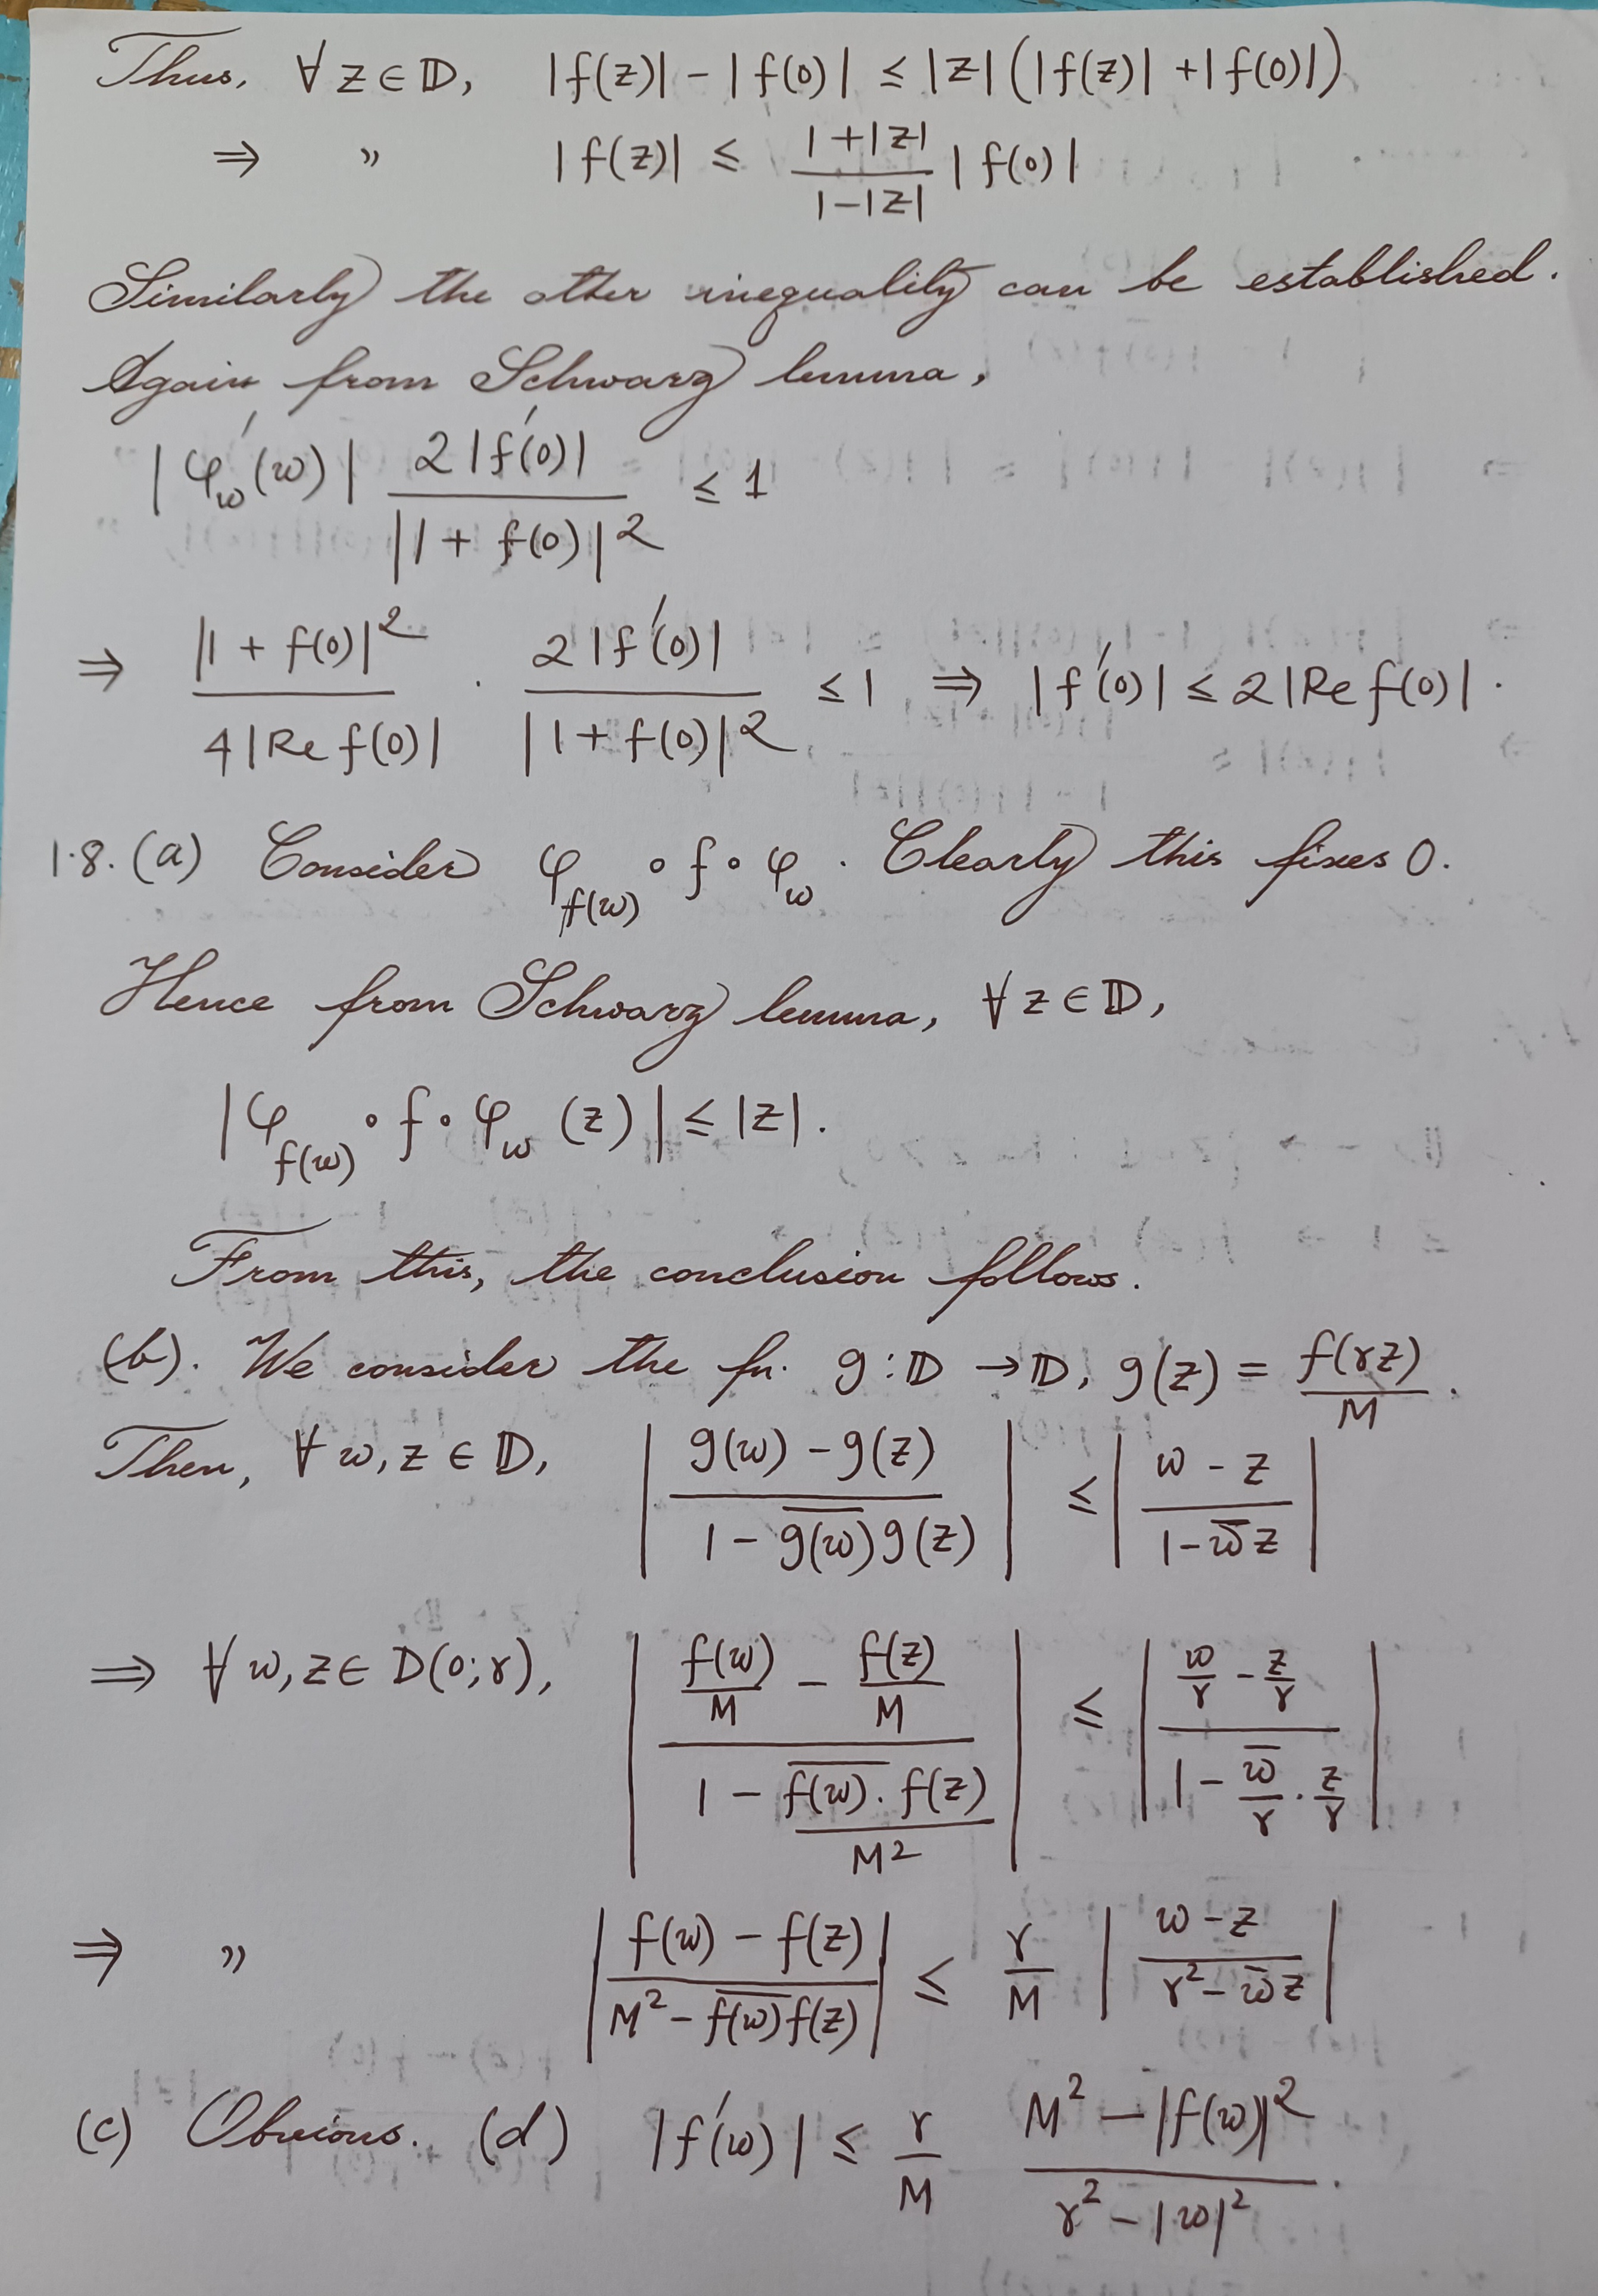 Thus, ∀ z ∈ 𝔻, |f(z)| - |f(0)| ≤ |z| (|f(z)| + |f(0)|)
⇒ " |f(z)| ≤ \frac{1+|z|}{1-|z|} |f(0)|
Similarly the other inequality can be established.
Again from Schwarz lemma,
|φ_w'(w)| \frac{2|f'(0)|}{|1 + f(0)|^2} ≤ 1
⇒ \frac{|1 + f(0)|^2}{4|Re f(0)|} · \frac{2|f'(0)|}{|1 + f(0)|^2} ≤ 1 ⇒ |f'(0)| ≤ 2|Re f(0)|.
1.8. (a) Consider φ_{f(w)} ∘ f ∘ φ_w. Clearly this fixes 0.
Hence from Schwarz lemma, ∀ z ∈ 𝔻,
|φ_{f(w)} ∘ f ∘ φ_w (z)| ≤ |z|.
From this, the conclusion follows.
(b). We consider the fn. g : 𝔻 → 𝔻, g(z) = \frac{f(rz)}{M}.
Then, ∀ w, z ∈ 𝔻, \left| \frac{g(w) - g(z)}{1 - \overline{g(w)} g(z)} \right| ≤ \left| \frac{w - z}{1 - \overline{w} z} \right|
⇒ ∀ w, z ∈ D(0; r), \left| \frac{\frac{f(w)}{M} - \frac{f(z)}{M}}{1 - \frac{\overline{f(w)} . f(z)}{M^2}} \right| ≤ \left| \frac{\frac{w}{r} - \frac{z}{r}}{1 - \frac{\overline{w}}{r} . \frac{z}{r}} \right|
⇒ " \left| \frac{f(w) - f(z)}{M^2 - \overline{f(w)} f(z)} \right| ≤ \frac{r}{M} \left| \frac{w - z}{r^2 - \overline{w} z} \right|
(c) Obvious. (d) |f'(w)| ≤ \frac{r}{M} \frac{M^2 - |f(w)|^2}{r^2 - |w|^2}.